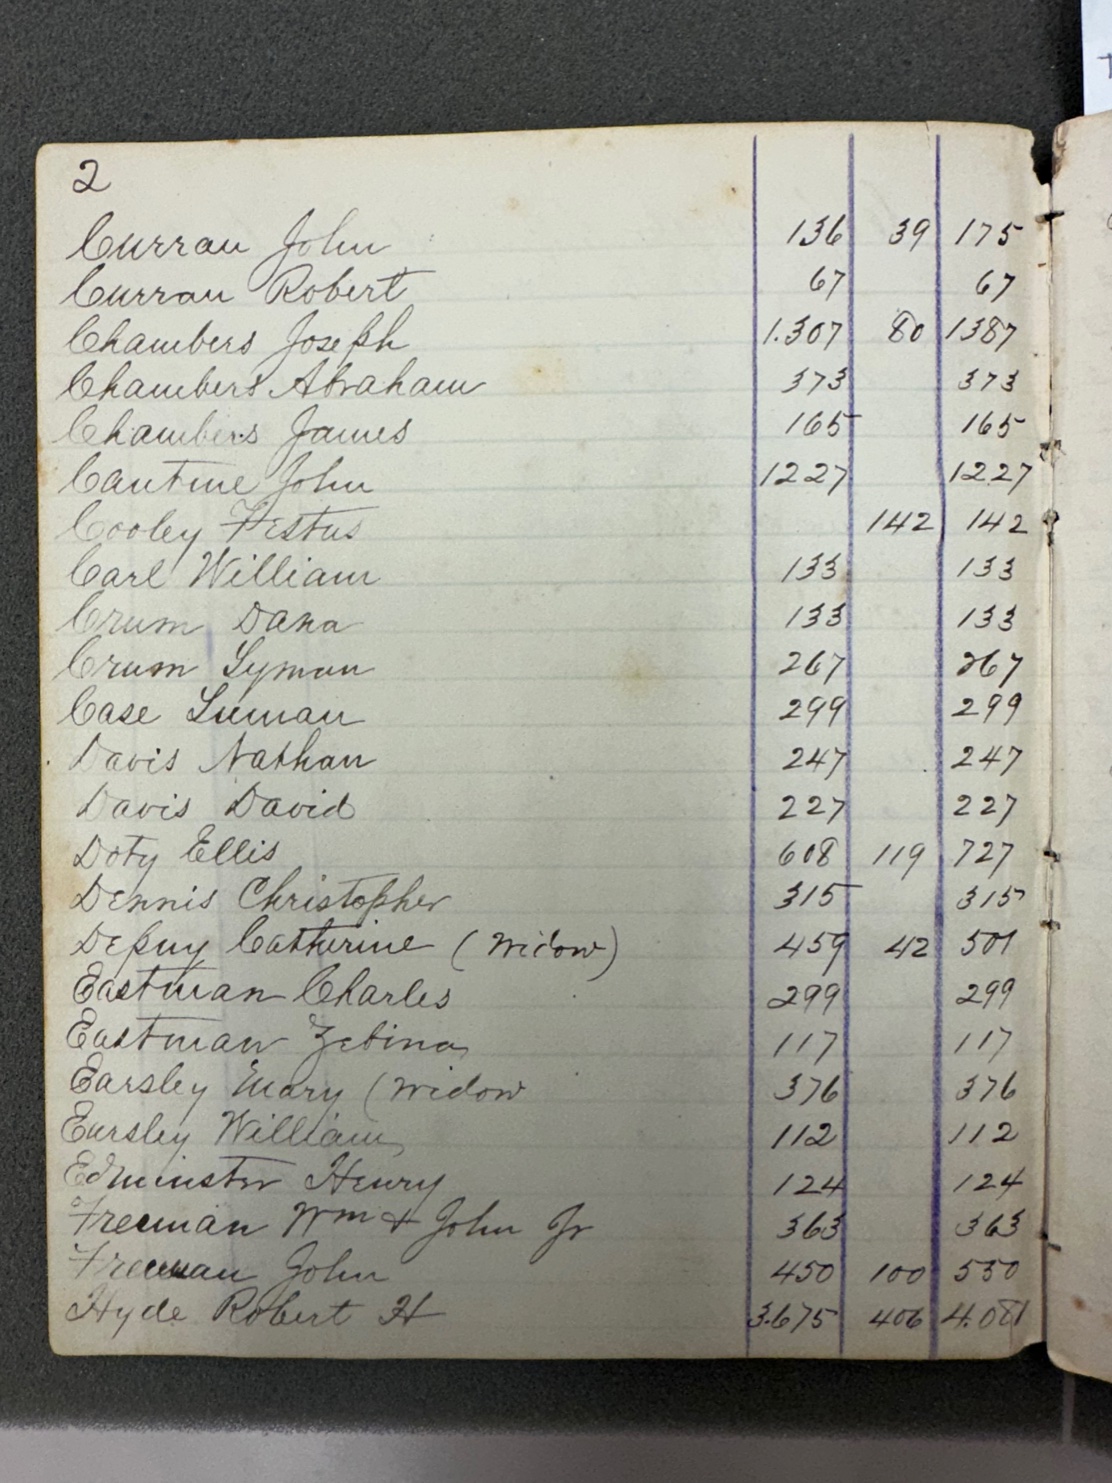 2
Curran John 136 39 175
Curran Robert 67 67
Chambers Joseph 1.307 80 1387
Chambers Abraham 373 373
Chambers James 165 165
Cantine John 1227 1227
Cooley Festus 142 142
Carl William 133 133
Crum Dana 133 133
Crum Lyman 267 267
Case Luman 299 299
Davis Nathan 247 247
Davis David 227 227
Doty Ellis 608 119 727
Dennis Christopher 315 315
Depuy Catherine (Widow) 459 42 501
Eastman Charles 299 299
Eastman Zebina 117 117
Earsley Mary (Widow 376 376
Earsley William 112 112
Edminster Henry 124 124
Freeman Wm & John Jr 363 363
Freeman John 450 100 550
Hyde Robert H 3.675 406 4.081